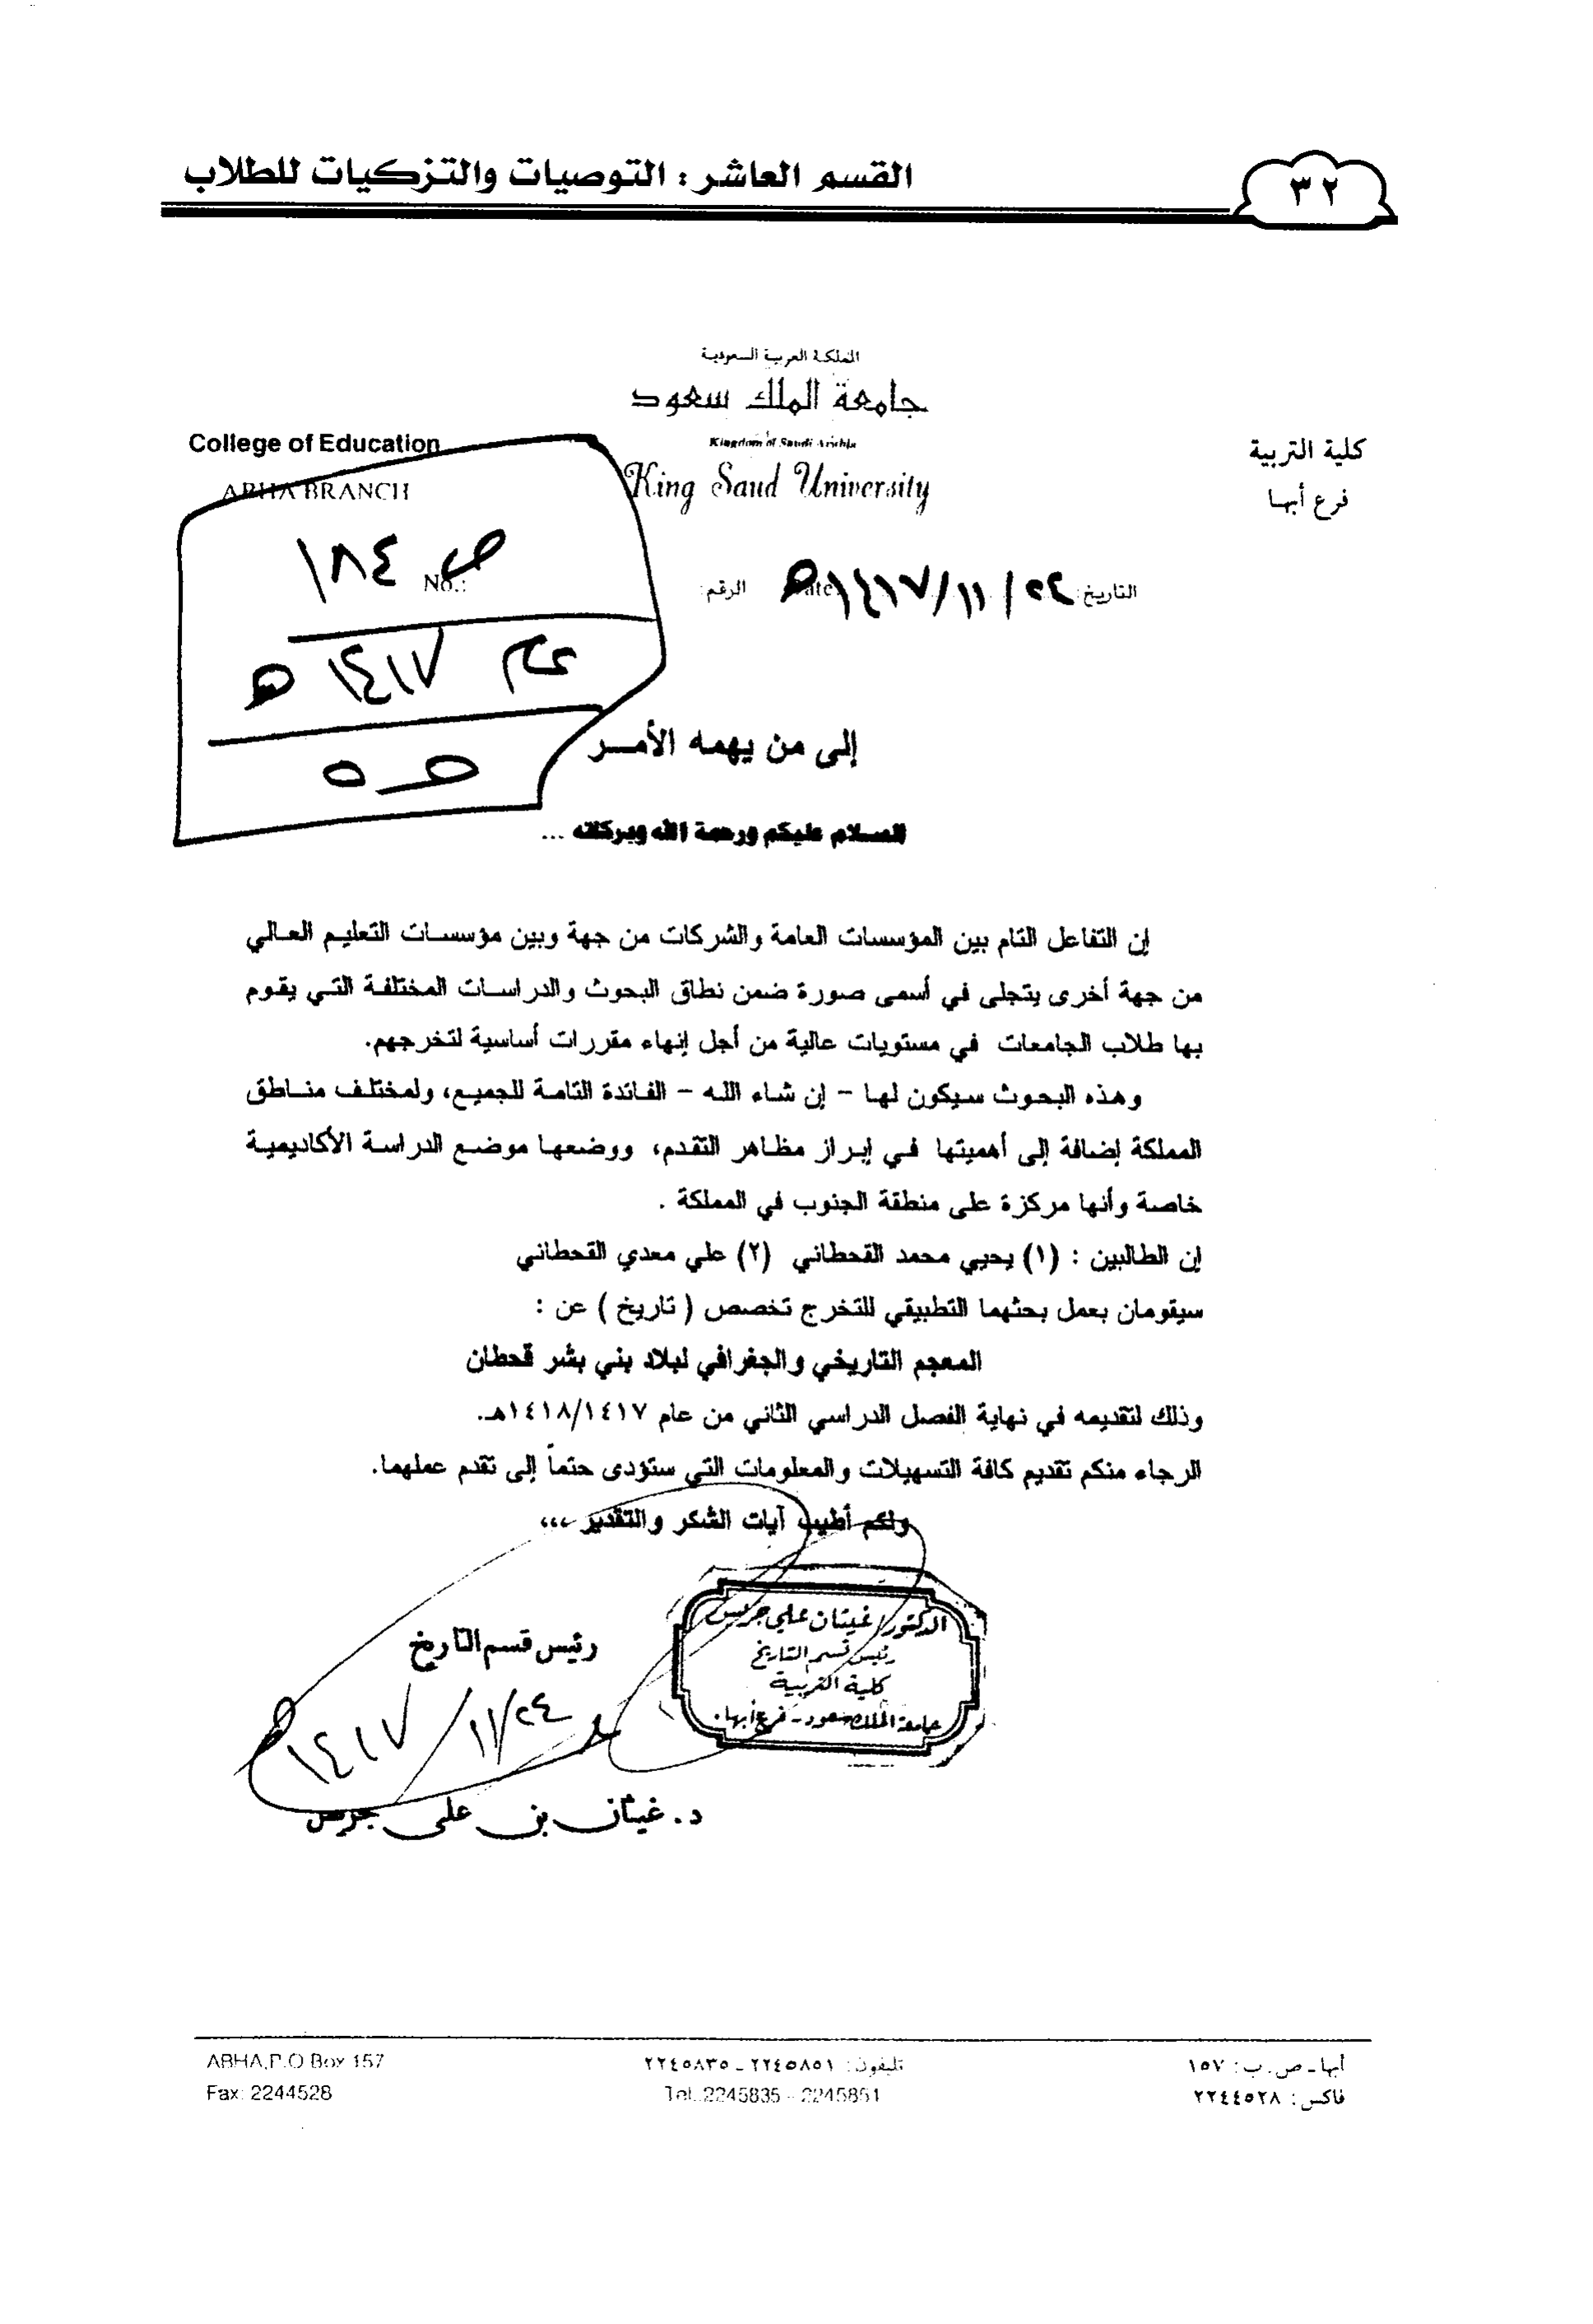 القسم العاشر : التوصيات والتزكيات للطلاب
٣٢
المملكة العربية السعودية
جامعة الملك سعود
Kingdom of Saudi Arabia
King Saud University
كلية التربية
فرع أبها
College of Education
ABHA BRANCH
التاريخ: ١٤١٧/١١/٢٤هـ Date
الرقم: No.:
ص ١٨٤
عام ١٤١٧ هـ
إلى من يهمه الأمـــر
السلام عليكم ورحمة الله وبركاته ...
إن التفاعل التام بين المؤسسات العامة والشركات من جهة وبين مؤسسات التعليم العالي
من جهة أخرى يتجلى في أسمى صورة ضمن نطاق البحوث والدراسات المختلفة التي يقوم
بها طلاب الجامعات في مستويات عالية من أجل إنهاء مقررات أساسية لتخرجهم.
وهذه البحوث سيكون لها – إن شاء الله – الفائدة التامة للجميع، ولمختلف مناطق
المملكة إضافة إلى أهميتها في إبراز مظاهر التقدم، ووضعها موضع الدراسة الأكاديمية
خاصة وأنها مركزة على منطقة الجنوب في المملكة .
إن الطالبين : (١) يحيي محمد القحطاني (٢) علي معدي القحطاني
سيقومان بعمل بحثهما التطبيقي للتخرج تخصص ( تاريخ ) عن :
المعجم التاريخي والجغرافي لبلاد بني بشر قحطان
وذلك لتقديمه في نهاية الفصل الدراسي الثاني من عام ١٤١٨/١٤١٧هـ.
الرجاء منكم تقديم كافة التسهيلات والمعلومات التي ستؤدى حتماً إلى تقدم عملهما.
ولكم أطيب آيات الشكر والتقدير ،،،
الدكتور/ غيثان علي جريس
رئيس قسم التاريخ
كلية التربية
جامعة الملك سعود - فرع أبها.
رئيس قسم التاريخ
١٤١٧/١١/٢٤هـ
د. غيثان بن على جريس
أبها ـ ص. ب: ١٥٧
فاكس: ٢٢٤٤٥٢٨
تليفون: ٢٢٤٥٨٥١ ـ ٢٢٤٥٨٣٥
Tel. 2245835 - 2245851
ABHA,P.O Box 157
Fax: 2244528